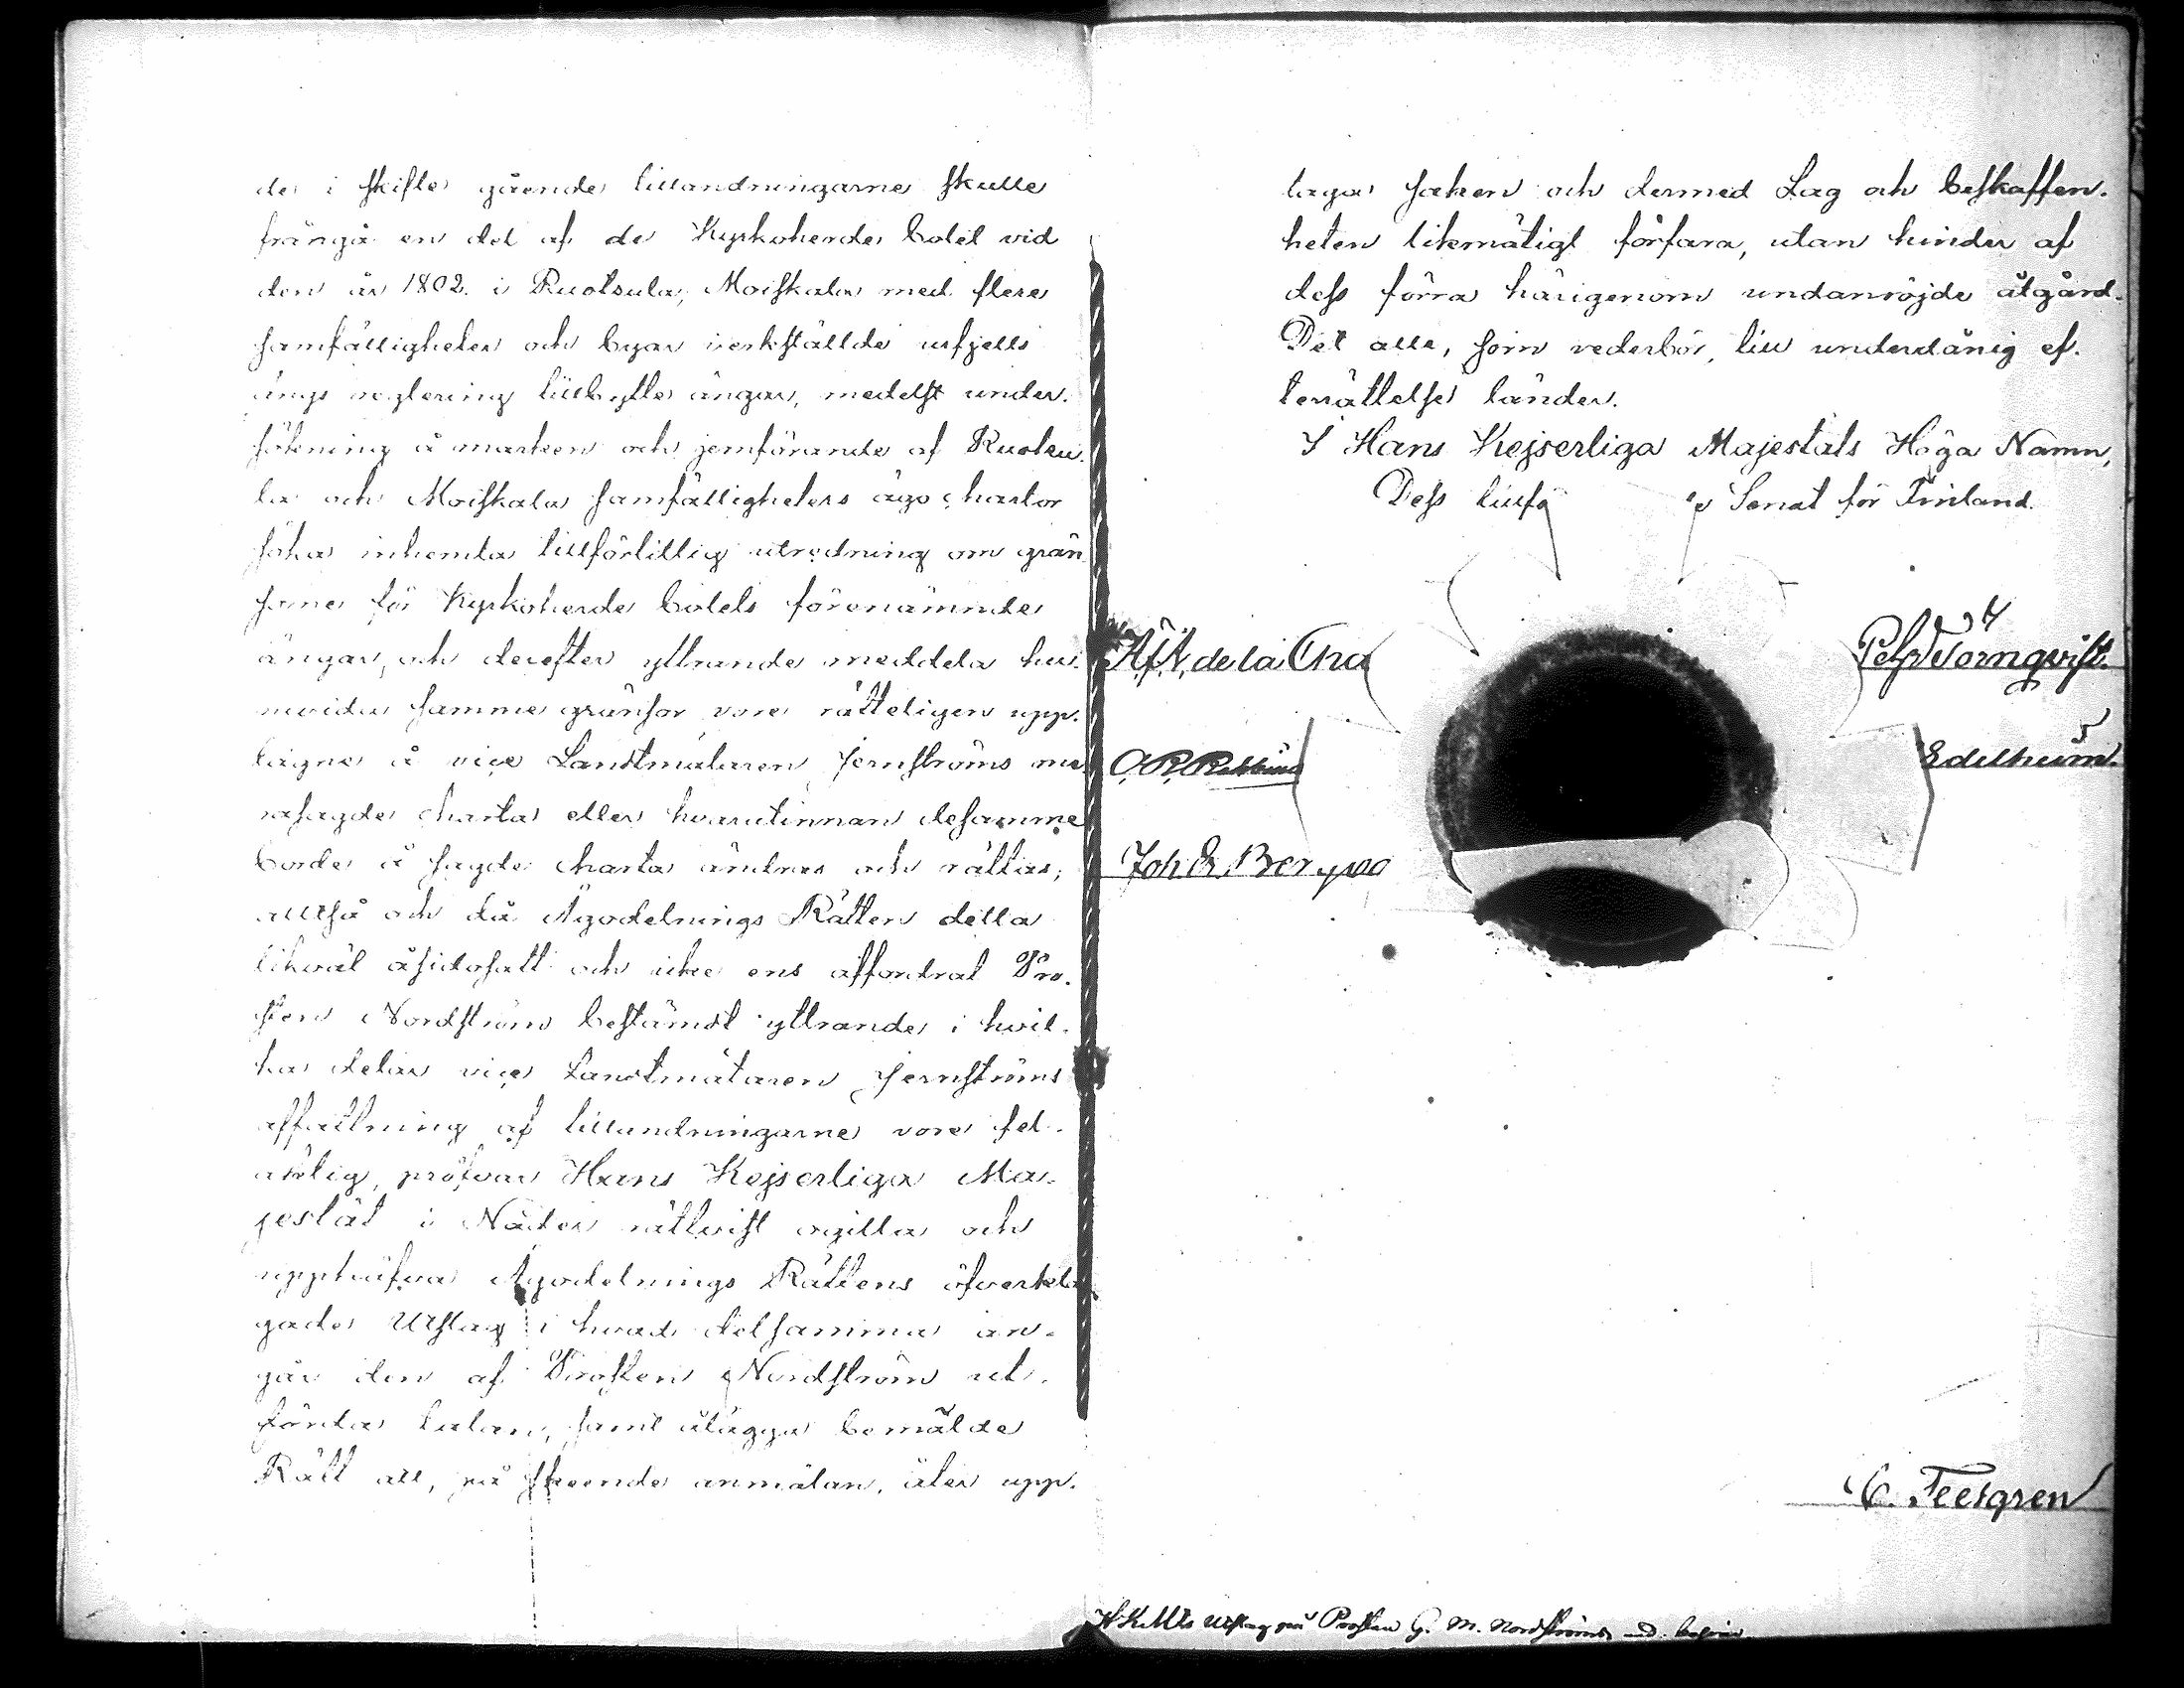 de i skifte gående tillandningarne skulle
frångå en del af de Kyrkoherde bolet vid
den år 1802 i Ruotsula, Moiskala med flere
samfälligheter och byar verkställde urfjells
ängs reglering tillbytte ängar, medelst under-
sökning å marken och jemförande af Ruotsu-
la och Moiskala samfälligheters ägo chartor
söka inhemta tillförlitlig utredning om grän-
sorne för Kyrkoherde bolets förenämnde
ängar, och derefter yttrande meddela huru-
novida samme gränsor vore rätteligen upp-
tagne å vice Landtmätaren Jernströms me-
rasagde charta eller hvarutinnan desamme
borde å sagde charta ändras och rättas;
alltså och då Ägodelnings Rätten detta
likväl åsidosatt och icke ens affordrat Pro-
sten Nordström bestämdt yttrande i hvil-
ka delar vice Landtmätaren Jernströms
affattning af tillandningarne vore fel-
aktig, pröfvar Hans Kejserliga Ma-
jestät i Nåder rättvist ogilla och
upphäfva Ägodelnings Rättens öfverkla-
gade Utslag i hvad detsamma an-
går den af Prosten Nordström ut-
förda talan, samt ålägga bemälde
Rätt att, på skeende anmälan, åter upp-
taga saken och dermed Lag och beskaffen-
heten likmätigt förfara, utan hinder af
dess förra härigenom undanröjde åtgärd.
Det alle, som vederbör, till underdånig ef-
terrättelse länder.
I Hans Kejserliga Majestäts Höga Namn,
Dess tillfö e Senat för Finland.
de la Cha
Törnqvist.
C. R. Rehbinder
Edelheim.
Joh. E. Bergboo
C. Feetgren
HKMts Utslag på Prosten G. M. Nordströms und. besvär